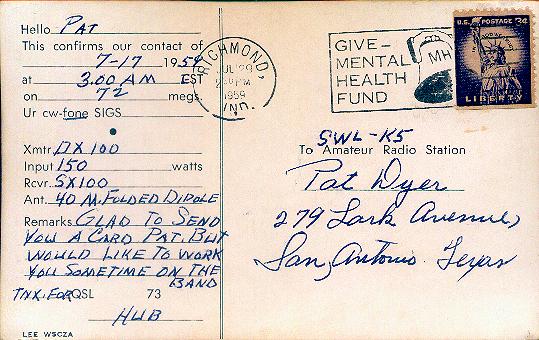 Hello PAT
This confirms our contact of
7-17 1959
at 3.00 AM EST
on 72 megs.
Ur cw-fone SIGS
Xmtr DX 100
Input 150 watts
Rcvr. SX100
Ant. 40 M. FOLDED DIPOLE
Remarks GLAD TO SEND
YOU A CARD PAT. BUT
WOULD LIKE TO WORK
YOU SOMETIME ON THE
BAND
TNX. FOR QSL 73
HUB
LEE W5CZA
RICHMOND,
JUL 29
1959
IND.
GIVE-
MENTAL
HEALTH
FUND
MH
U.S. POSTAGE 3¢
IN GOD WE TRUST
LIBERTY
SWL-K5
To Amateur Radio Station
Pat Dyer
279 Lark Avenue,
San Antonio Texas